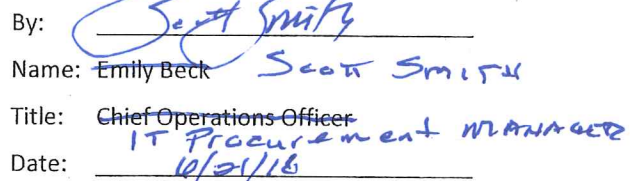 By: Scott Smith
Name: Emily Beck Scott Smith
Title: Chief Operations Officer
IT Procurement MANAGER
Date: 6/21/18